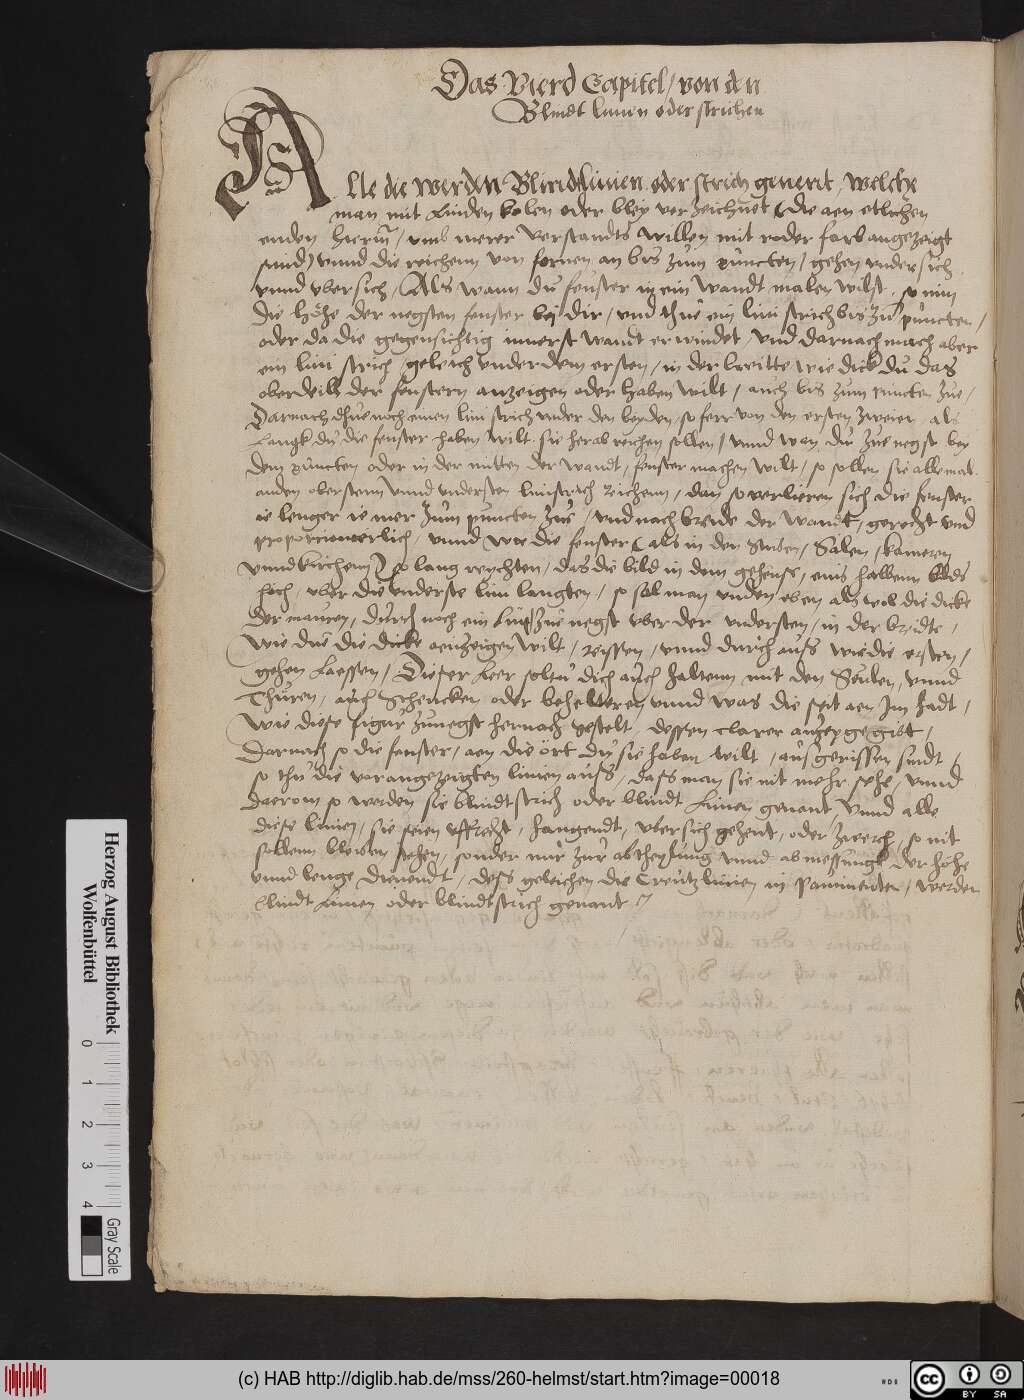 Das Vierd Capitel / von den
Blindt linien oder strichen
Alle die werden Blindtlinien oder strich genent, welche
man mit Linden kolen oder bley verzeichnet (die aen etlichen
enden hierin / umb merer verstandts willen mit roder farb angezeigt
sind) unnd die reichenn von fornen an bis zum puncten / gehen undersich
unnd ubersich / Als wann du fenster in ein wandt malen wilst, so nim
die höhe der negsten fenster bej dir / und thue ein lini strich bis zu puncten /
oder da die gegensichtig innerst wandt erwindet / und darnach mach aber
ein lini strich / geleich under dem ersten / in der breitte wie dick du das
oberdeill der fenstern anzeigen oder haben wilt / auch bis zum puncten zue /
Darnach dhue noch einen lini strich under den beyden, so ferr von den ersten zweien, als
Langk du die fenster haben wilt, sie herab reichen sollen / unnd wan du zue negst bey
dem puncten oder in der mitten der wandt / fenster machen wilt / so sollen sie allemal
an den oberstenn unnd understen linistrich reichenn / dan so verlieren sich die fenster
ie lenger ie mer zum puncten zue / und nach breide der wandt, gerecht und
proportionierlich / unnd wie die fenster (als in den Stuben / Salen / kameren
unnd kirchenn) so lang reychten / das die bild in dem geheuse / eins halbenn bilds
hoch, uber die underste lini langten / so sol man unden eben als wol die dicke
der mauren / durch noch ein lini zue negst uber der understen / in der breidte,
wie due die dicke aenzeigen wilt, reissen / unnd durch aufs wie die ersten /
gehen Laessen / Dieser Leer soltu dich auch haltenn mit den Seulen, unnd
Thüren, auch Schencken oder behelteren, unnd was die seit aen Im hadt,
wie diese figur zunegst hernach gestelt, dessen clarer anzey gegibt,
Darnach so die fenster / aen die ört du sie haben wilt, aufsgerissen sindt,
so thu die vorangezeigten linien aufs, dafs man sie nit mehr sehe, unnd
daerom so werden sie blindtstrich oder blindt Linien genant, Unnd alle
diese linien, sie seien uffrecht, hangendt, ubersich gehent, oder zwerch, so nit
sollenn bleiben stehen, sonder nur zur abtheylung unnd abmessungk der höhe
unnd lenge dienendt, defs geleichen die Creutzlinien in Paviment, werden
blindt Linien oder blindtstrich genant
Herzog August Bibliothek
Wolfenbüttel
0 1 2 3 4
Gray Scale
(c) HAB http://diglib.hab.de/mss/260-helmst/start.htm?image=00018
HAB
cc BY SA